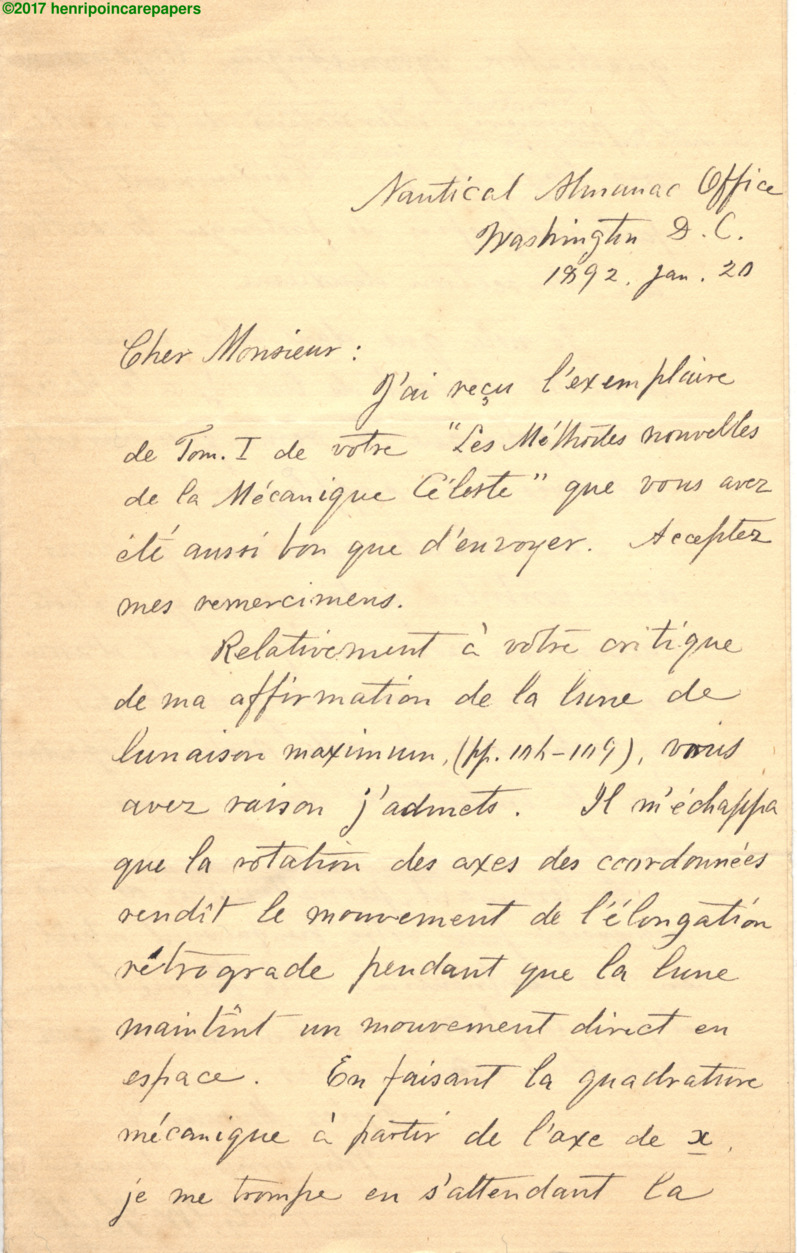 ©2017 henripoincarepapers
Nautical Almanac Office
Washington D. C.
1892. Jan. 20
Cher Monsieur :
J'ai reçu l'exemplaire
de Tom. I de votre "Les Méthodes nouvelles
de la Mécanique Céleste" que vous avez
été aussi bon que d'envoyer. Acceptez
mes remercimens.
Relativement à votre critique
de ma affirmation de la lune de
lunaison maximum, (pp. 104-109), vous
avez raison j'admets. Il m'échappa
que la rotation des axes des coordonnées
rendît le mouvement de l'élongation
rétrograde pendant que la lune
maintînt un mouvement direct en
espace. En faisant la quadrature
mécanique à partir de l'axe de x,
je me trompe en s'attendant la